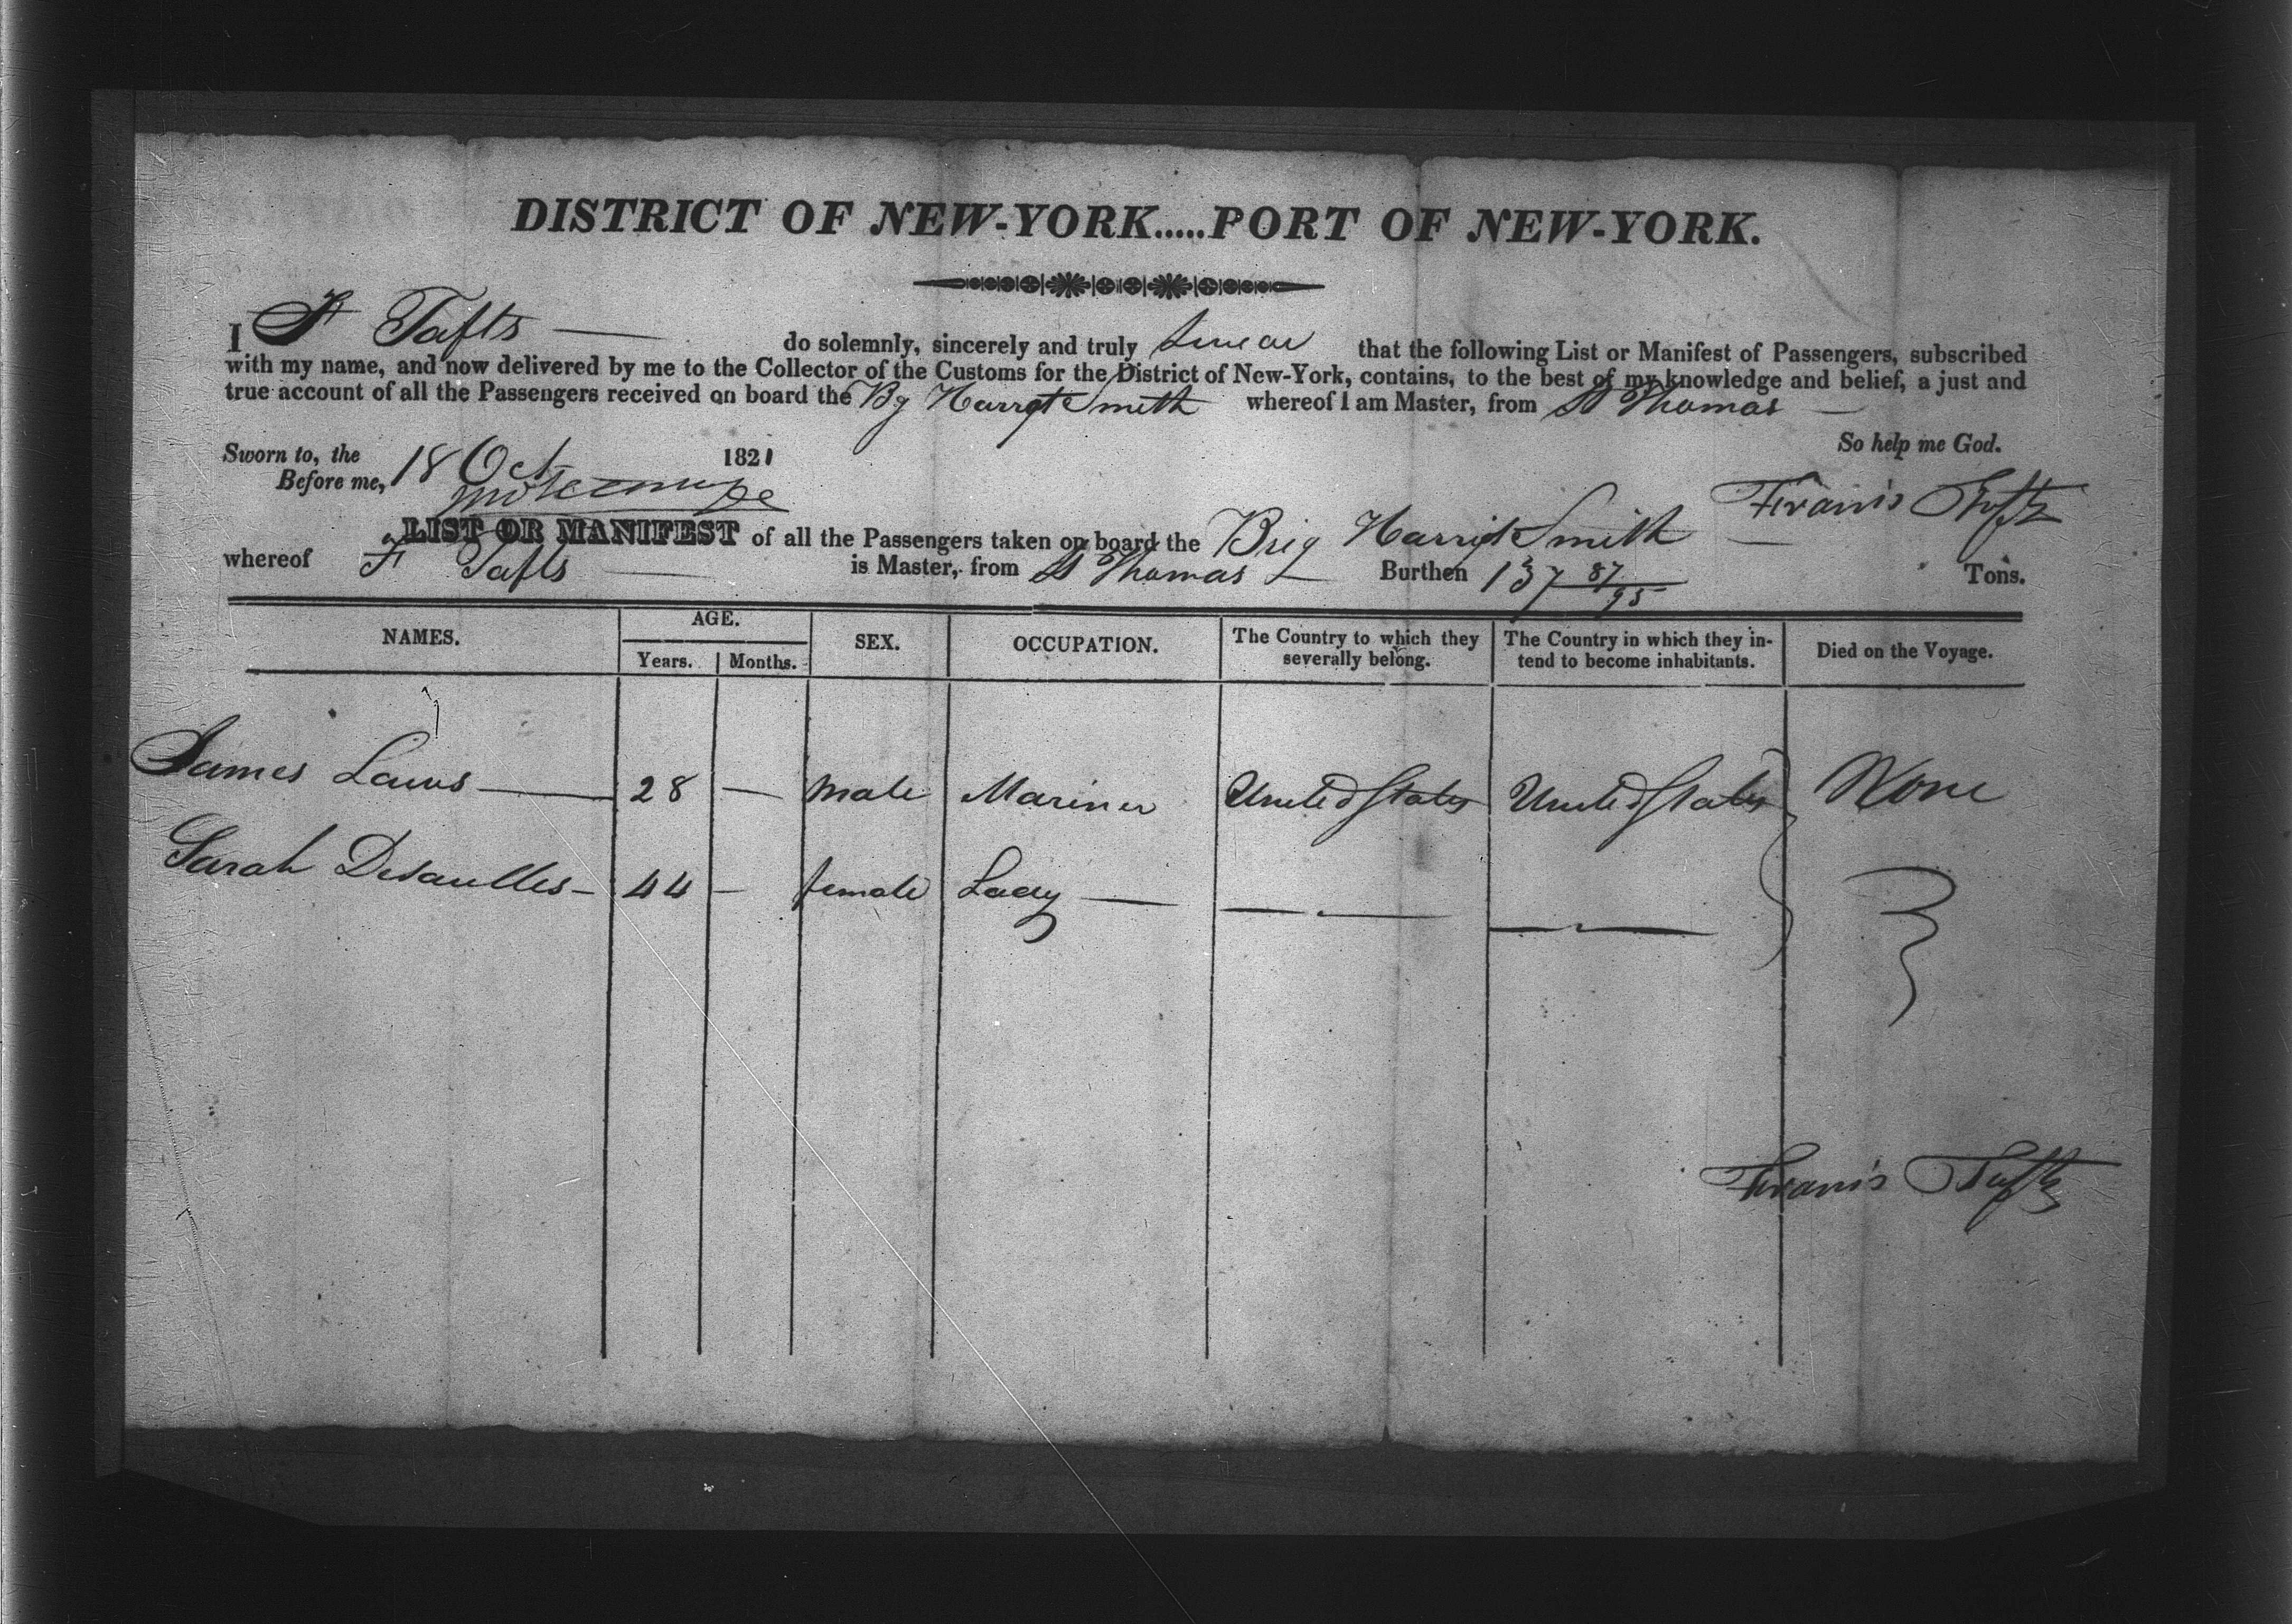 DISTRICT OF NEW-YORK.....PORT OF NEW-YORK.
I F Tafts do solemnly, sincerely and truly swear that the following List or Manifest of Passengers, subscribed
with my name, and now delivered by me to the Collector of the Customs for the District of New-York, contains, to the best of my knowledge and belief, a just and
true account of all the Passengers received on board the Bg Harriet Smith whereof I am Master, from St Thomas
So help me God.
Sworn to, the 18 Oct 1821
Before me,
Francis Tufts
LIST OR MANIFEST of all the Passengers taken on board the Brig Harriet Smith
whereof F Tafts is Master, from St Thomas Burthen 137 87/95 Tons.
NAMES. AGE. SEX. OCCUPATION. The Country to which they severally belong. The Country in which they intend to become inhabitants. Died on the Voyage.
Years. Months.
James Laws 28 — male Mariner United States United States None
Sarah Desaulles 44 — female Lady — —
Francis Tufts